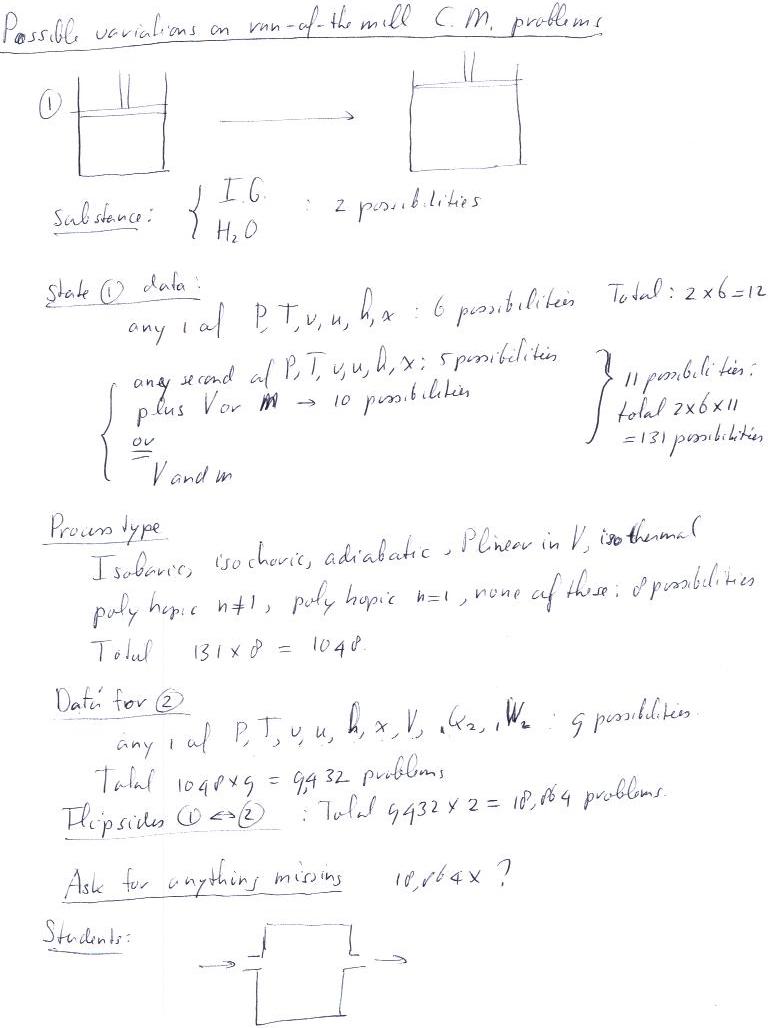 Possible variations on run-of-the mill C.M. problems
①
Substance: { I.G. H₂O : 2 possibilities
State ① data:
any 1 of P, T, v, u, h, x : 6 possibilities Total: 2 x 6 = 12
any second of P, T, v, u, h, x: 5 possibilities
plus V or m → 10 possibilities
or
V and m
} 11 possibilities:
total 2x6x11
= 131 possibilities
Process type
Isobaric, isochoric, adiabatic, P linear in V, isothermal
polytropic n≠1, polytropic n=1, none of these: 8 possibilities
Total 131 x 8 = 1048.
Data for ②
any 1 of P, T, v, u, h, x, V, ₁Q₂, ₁W₂ : 9 possibilities.
Total 1048 x 9 = 9,432 problems
Flipsides ① ⇔ ② : Total 9432 x 2 = 18,864 problems.
Ask for anything missing 18,864 x ?
Students: